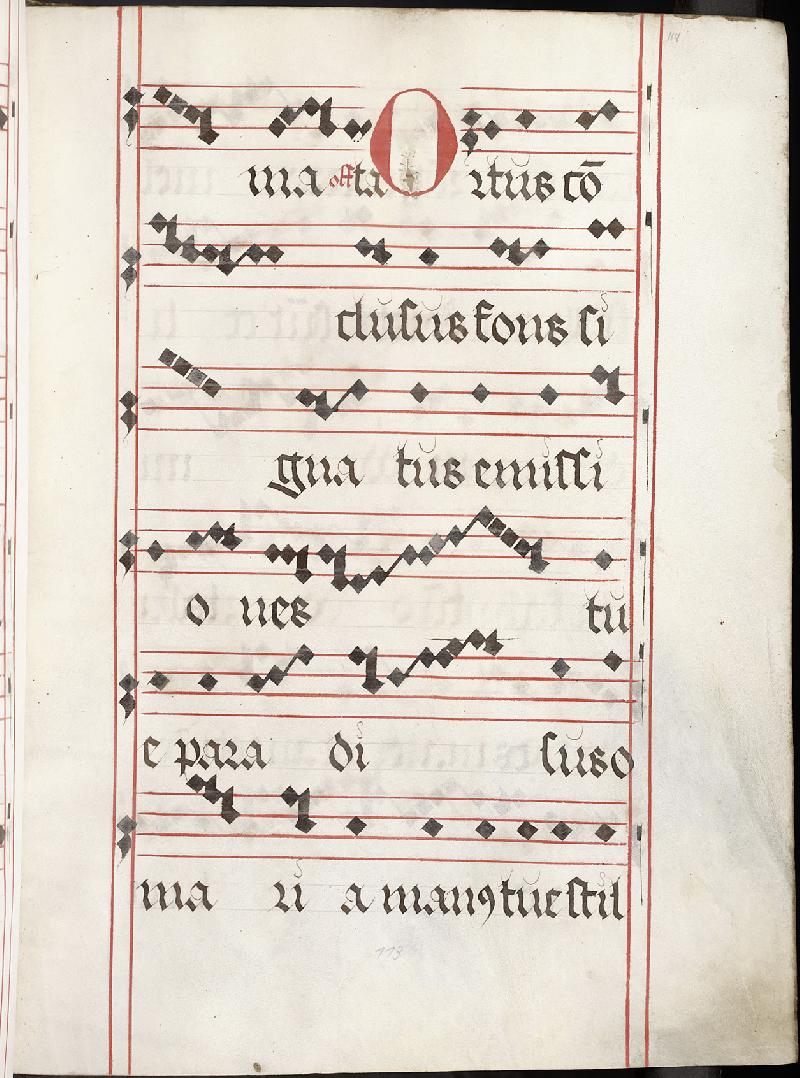 ma off ta Ortus cō
clusus fons si
gna tus emissi
o nes tu
e para di sus o
ma ri a man9 tue stil
113